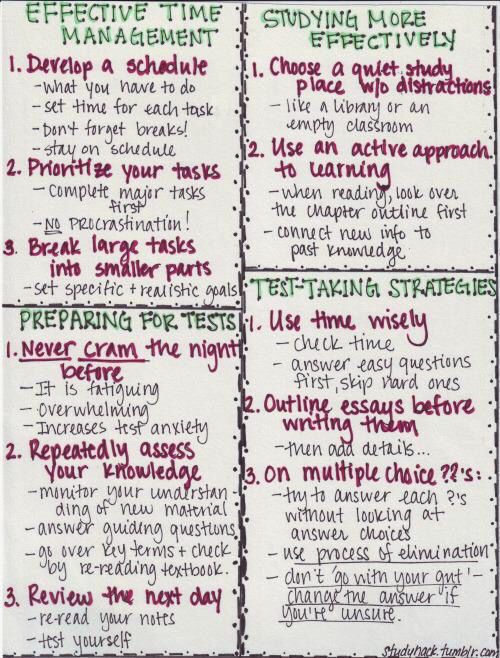 EFFECTIVE TIME
MANAGEMENT
1. Develop a schedule
-what you have to do
-set time for each task
-Don't forget breaks!
-stay on schedule
2. Prioritize your tasks
-Complete major tasks
first
-NO PROCRASTINATION!
3. Break large tasks
into smaller parts
-set specific + realistic goals
STUDYING MORE
EFFECTIVELY
1. Choose a quiet study
place w/o distractions
-like a library or an
empty classroom
2. Use an active approach
to learning
-when reading, look over
the chapter outline first
-connect new info to
past knowledge
PREPARING FOR TESTS
1. Never cram the night
before
-It is fatiguing
-overwhelming
-Increases test anxiety
2. Repeatedly assess
your knowledge
-monitor your understan-
ding of new material
-answer guiding questions
-go over key terms + check
by re-reading textbook.
3. Review the next day
-re-read your notes
-test yourself
TEST-TAKING STRATEGIES
1. Use time wisely
-check time
-answer easy questions
first, skip hard ones
2. Outline essays before
writing them
-then add details...
3. On multiple choice ??'s:
-try to answer each ?'s
without looking at
answer choices
-use process of elimination
-don't 'go with your gut'-
change the answer if
you're unsure.
studyhack.tumblr.com